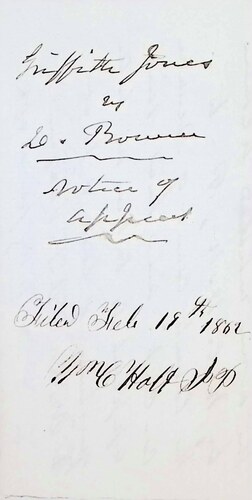 Griffith Jones
vs
D. Bowen
Notice of
Appeal
Filed Feb 19th 1862
Holt J P